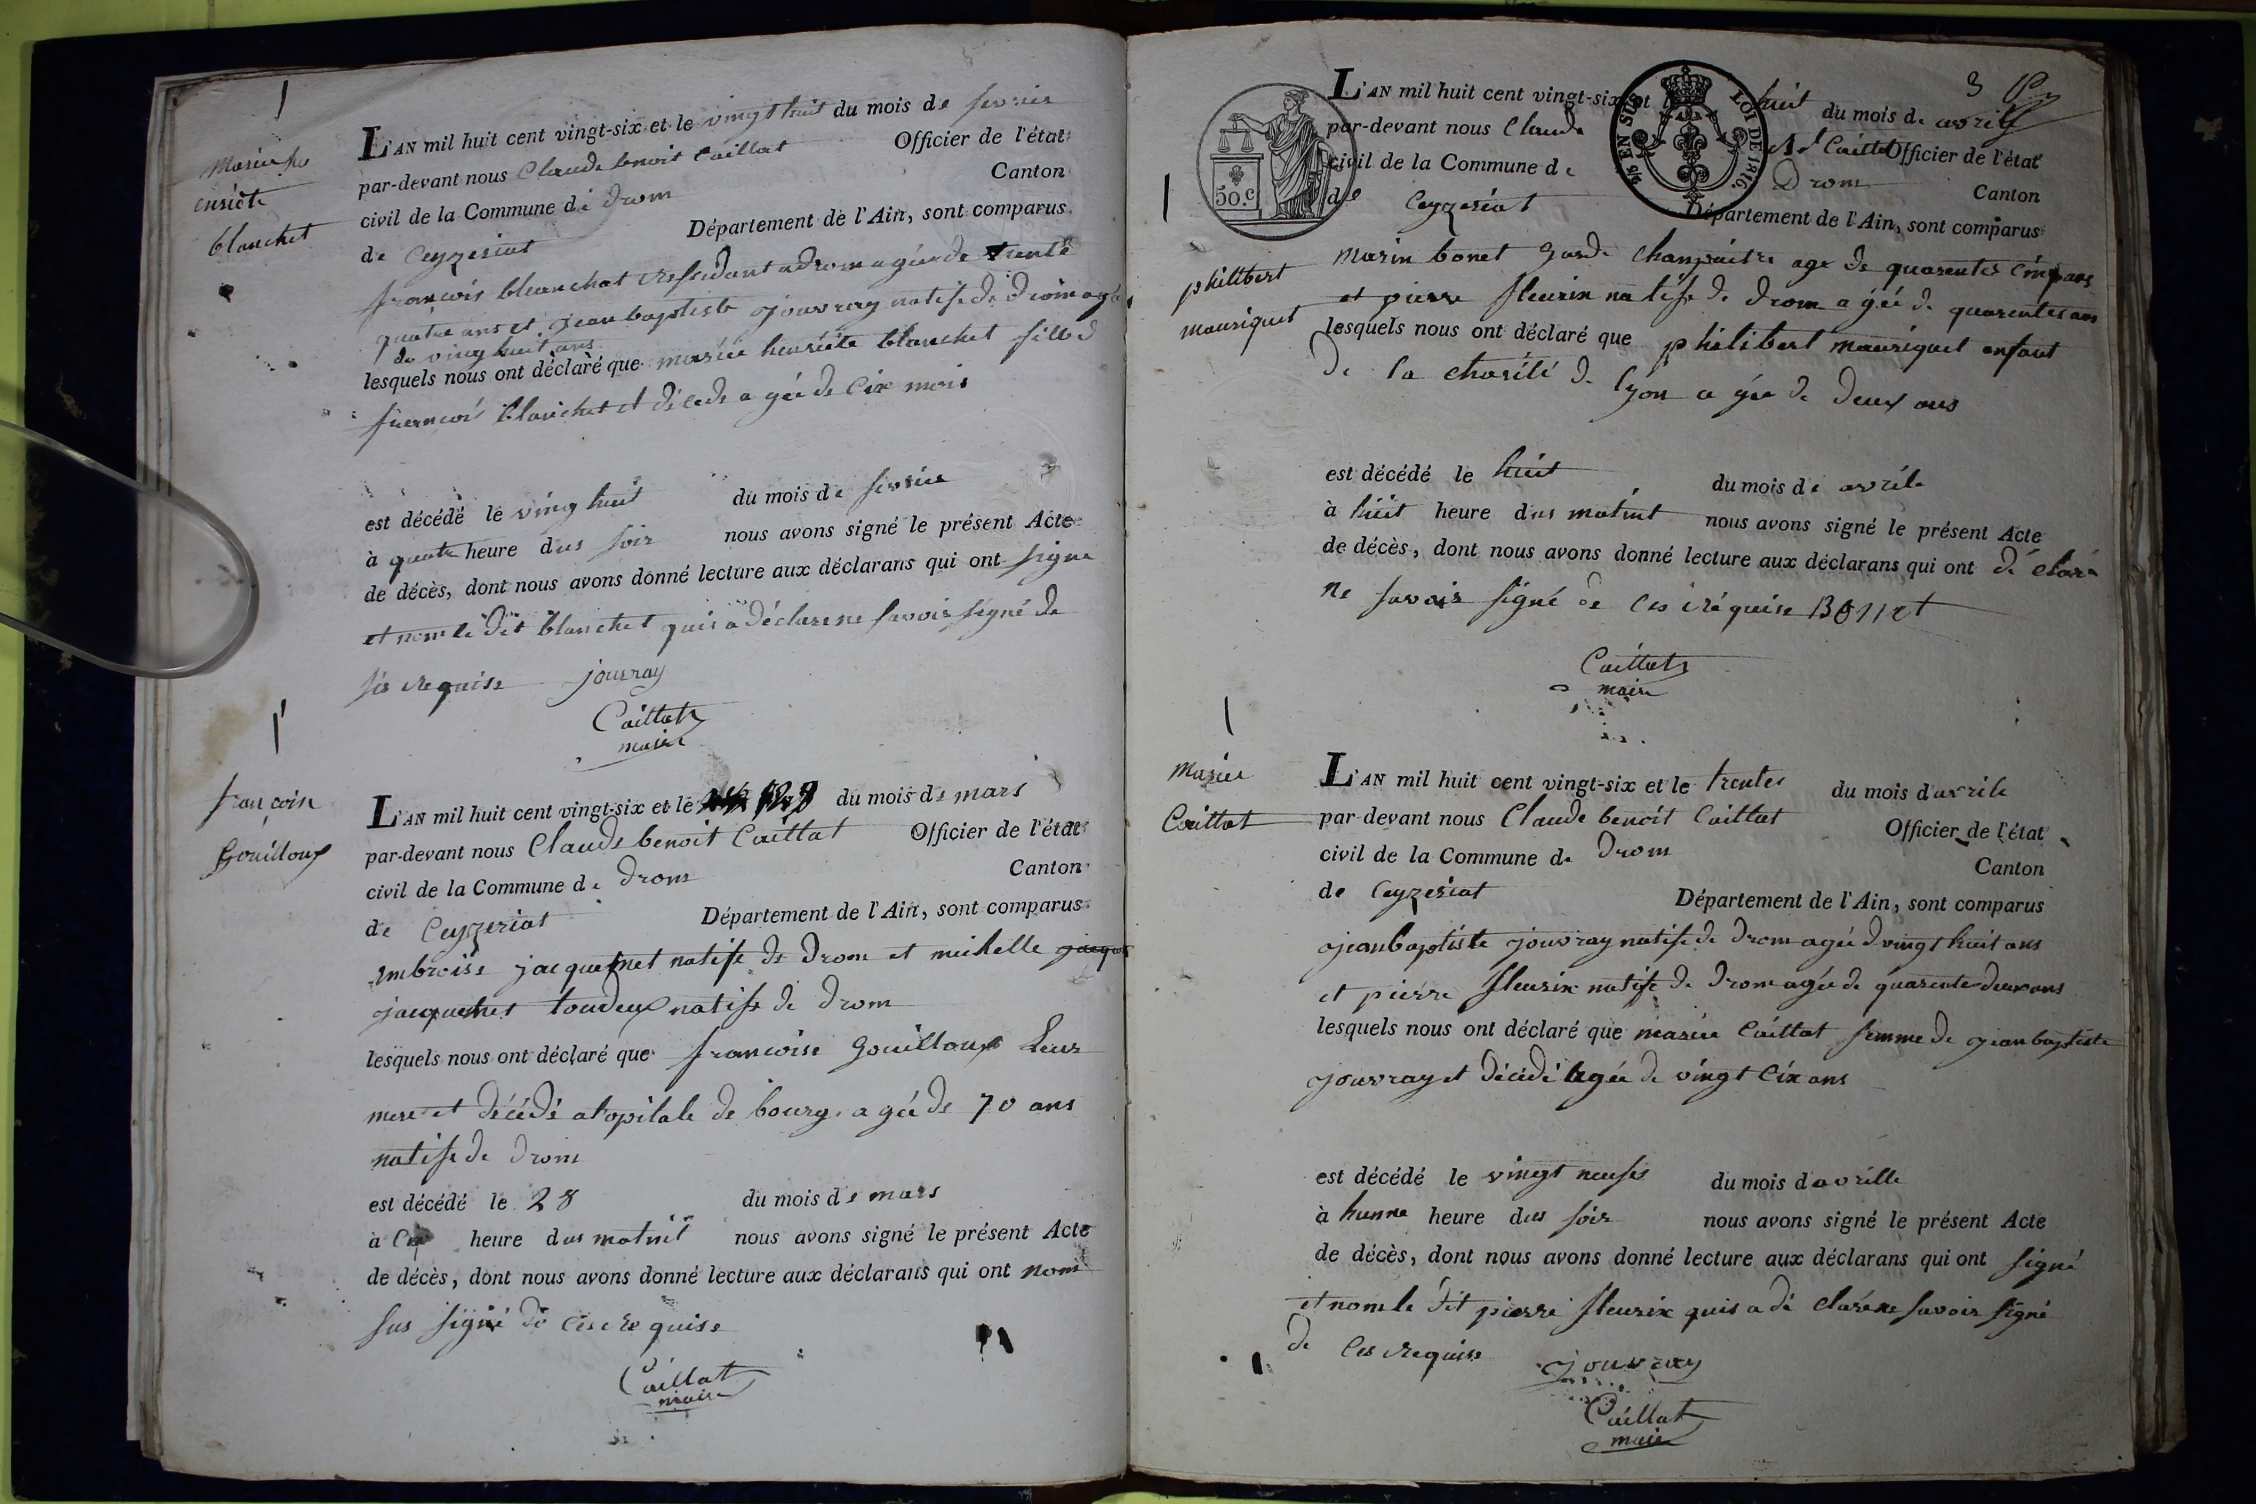 Marie he
nriete
blanchet
L'AN mil huit cent vingt-six et le vingt huit du mois de fevrier
par-devant nous Claude benoit Caillat Officier de l'état
civil de la Commune de Drom Canton
de Ceyzeriat Département de l'Ain, sont comparus
francois blanchat residant a drom agée de trente
quatre ans et jean baptiste jouvray natife de drom agé
de ving huit ans
lesquels nous ont déclaré que mariée henriéte blanchet fille d
francois blanchet et décede a gée de Cix mois
est décédé le ving huit du mois de fevrier
à quatre heure dus soir nous avons signé le présent Acte
de décès, dont nous avons donné lecture aux déclarans qui ont signe
et nom le dit blanchet quis a déclare ne savoir signé de
sis requise jouvray
Caillat
maire
francoise
Gouilloux
L'AN mil huit cent vingt-six et le 28 du mois de mars
par-devant nous Claude benoit Caillat Officier de l'état
civil de la Commune de Drom Canton
de Ceyzeriat Département de l'Ain, sont comparus
Embroise jacquemet natife de Drom et mickelle
jacquemet toudeux natife de drom
lesquels nous ont déclaré que francoise Gouilloux Leur
mere et décédé a lopitale de bourg a gée de 70 ans
natife de Drom
est décédé le 28 du mois de mars
à heure dus matint nous avons signé le présent Acte
de décès, dont nous avons donné lecture aux déclarans qui ont nom
sus signé de ces requise
Caillat
maire
3
L'AN mil huit cent vingt-six et le huit du mois de avril
par-devant nous Claude Caillat Officier de l'état
civil de la Commune de Drom Canton
de Ceyzeriat Département de l'Ain, sont comparus
50.c
5e EN SUS
LOI DE 1816.
philibert
mauriquet
Marin bonet garde Champaitre age de quarentes cinq ans
et pierre fleurix natife de drom a gée de quarentes ans
lesquels nous ont déclaré que philibert mauriquet enfant
de la charité de lyon a gée de deux ans
est décédé le huit du mois de avrile
à huit heure dus matint nous avons signé le présent Acte
de décès, dont nous avons donné lecture aux déclarans qui ont déclaré
ne savoir signé de ces réquise BONNet
Caillat
maire
Mariee
Caillat
L'AN mil huit cent vingt-six et le trentes du mois davrile
par-devant nous Claude benoit Caillat Officier de l'état
civil de la Commune de Drom Canton
de Ceyzeriat Département de l'Ain, sont comparus
jeanbaptiste jouvray natife de drom agée d vingt huit ans
et pierre fleurix natife de drom agée de quarente deux ans
lesquels nous ont déclaré que mariée Caillat femme de jean baptiste
jouvray et décédé agée de vingt Cix ans
est décédé le vingt neufs du mois davrille
à hunne heure dus soir nous avons signé le présent Acte
de décès, dont nous avons donné lecture aux déclarans qui ont signé
et nom le dit pierre fleurix quis a dé claré ne savoir signé
de Ces requise jouvray
Caillat
maire